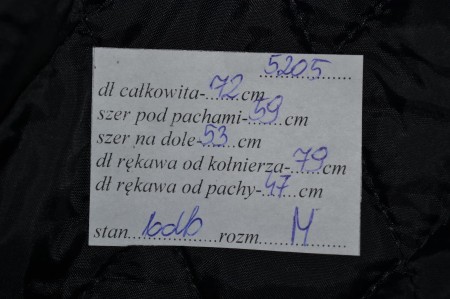 5205
dł całkowita-72cm
szer pod pachami-59cm
szer na dole-53cm
dł rękawa od kołnierza-79cm
dł rękawa od pachy-47cm
stan bdb rozm M